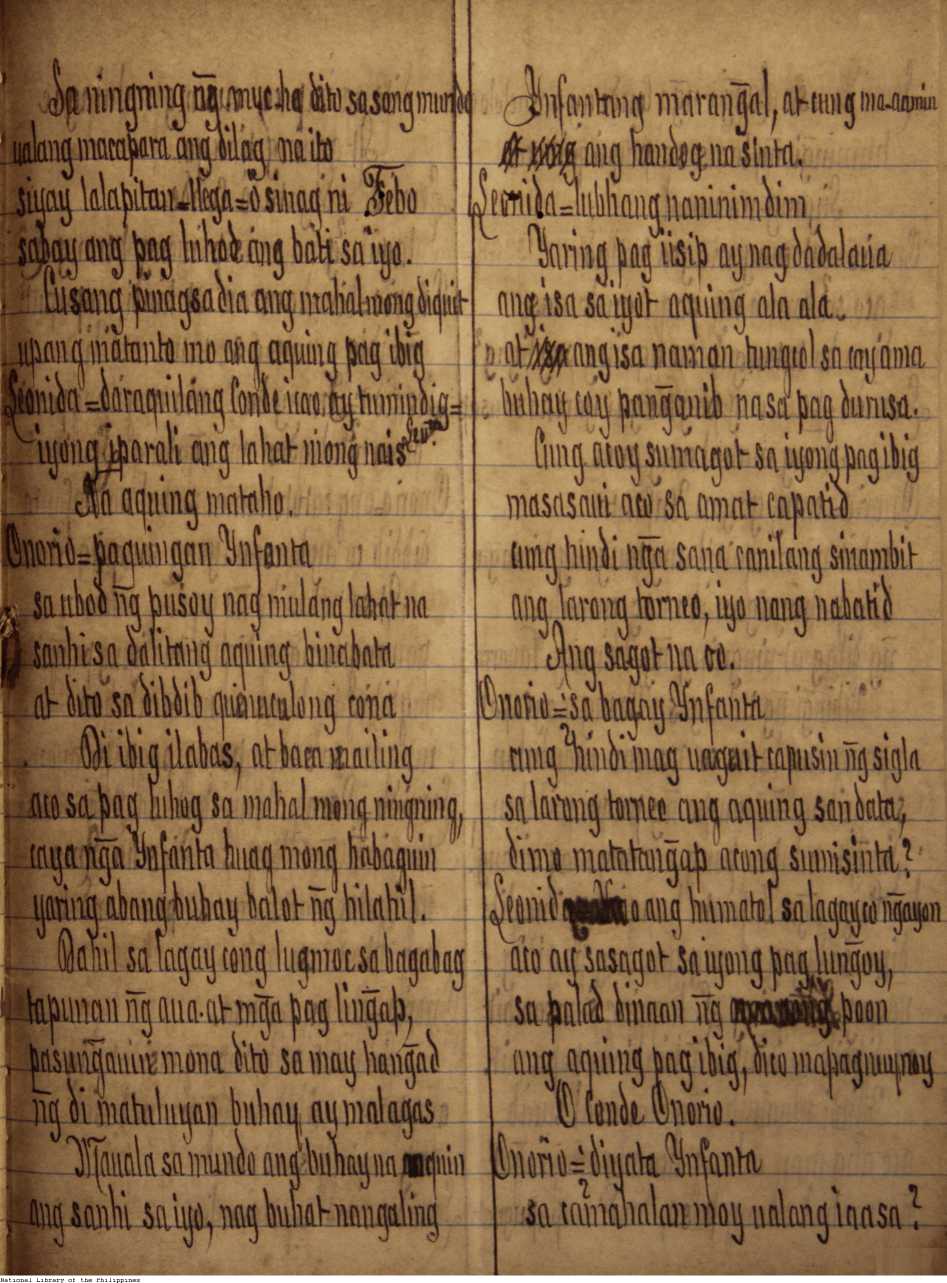 Sa ningning ng̃ muc ha dito sa sang mundo
ualang macapara ang dilag na ito
siyay lalapitan Nega ó sinag ni Febo
sabay ang pag luhod ang bati sa iyo.
Cusang pinagsadia ang mahal mong diquit
upang matanto mo ang aquing pag ibig
Leonida = daraquilang Conde icao, ay tumindig =
iyong iparali ang lahat mong nais
Na aquing mataho.
Onorio = paquingan Ynfanta
sa ubod ng̃ pusoy nag mulang lahat na
sanhi sa dalitang aquing binabata
at dito sa dibdib quinuculong cona
Di ibig ilabas, at baca mailing
aco sa pag luhog sa mahal mong ningning,
caya ng̃a Ynfanta huag mong habaguin
yaring abang buhay balot ng̃ hilahil.
Dahil sa lagay cong lugmoc sa bagabag
tapunan ng̃ aua at mg̃a pag ling̃ap,
pasung̃auin mona dito sa may hang̃ad
ng̃ di matuluyan buhay ay malagas
Mauala sa mundo ang buhay na aquin
ang sanhi sa iyo, nag buhat nangaling
Ynfantang marang̃al, at cung ma-aamin
ang handog na sinta.
Leonida = lubhang naninimdim
Yaring pag iisip ay nag dadalaua
ang isa sa iyot aquing ala ala
at ang isa naman tungcol sa cay ama
buhay coy pang̃anib na sa pag durusa.
Cung acoy sumagot sa iyong pag ibig
masasaui aco sa amat capatid
cung hindi ng̃a sana canilang sinambit
ang larong torneo, iyo nang nabatid
Ang sagot na co.
Onorio = sa bagay Ynfanta
cung hindi mag uaguit capusin ng̃ sigla
sa larong torneo ang aquing sandata,
dimo matatang̃ap acong sumisinta?
Leonida ang humatol sa lagay co ng̃ayon
aco ay sasagot sa iyong pag lung̃oy,
sa palad dinaan ng̃ poon
ang aquing pag ibig, dico mapagnuynoy
O Conde Onorio.
Onorio = diyata Ynfanta
sa camahalan moy ualang iaasa?